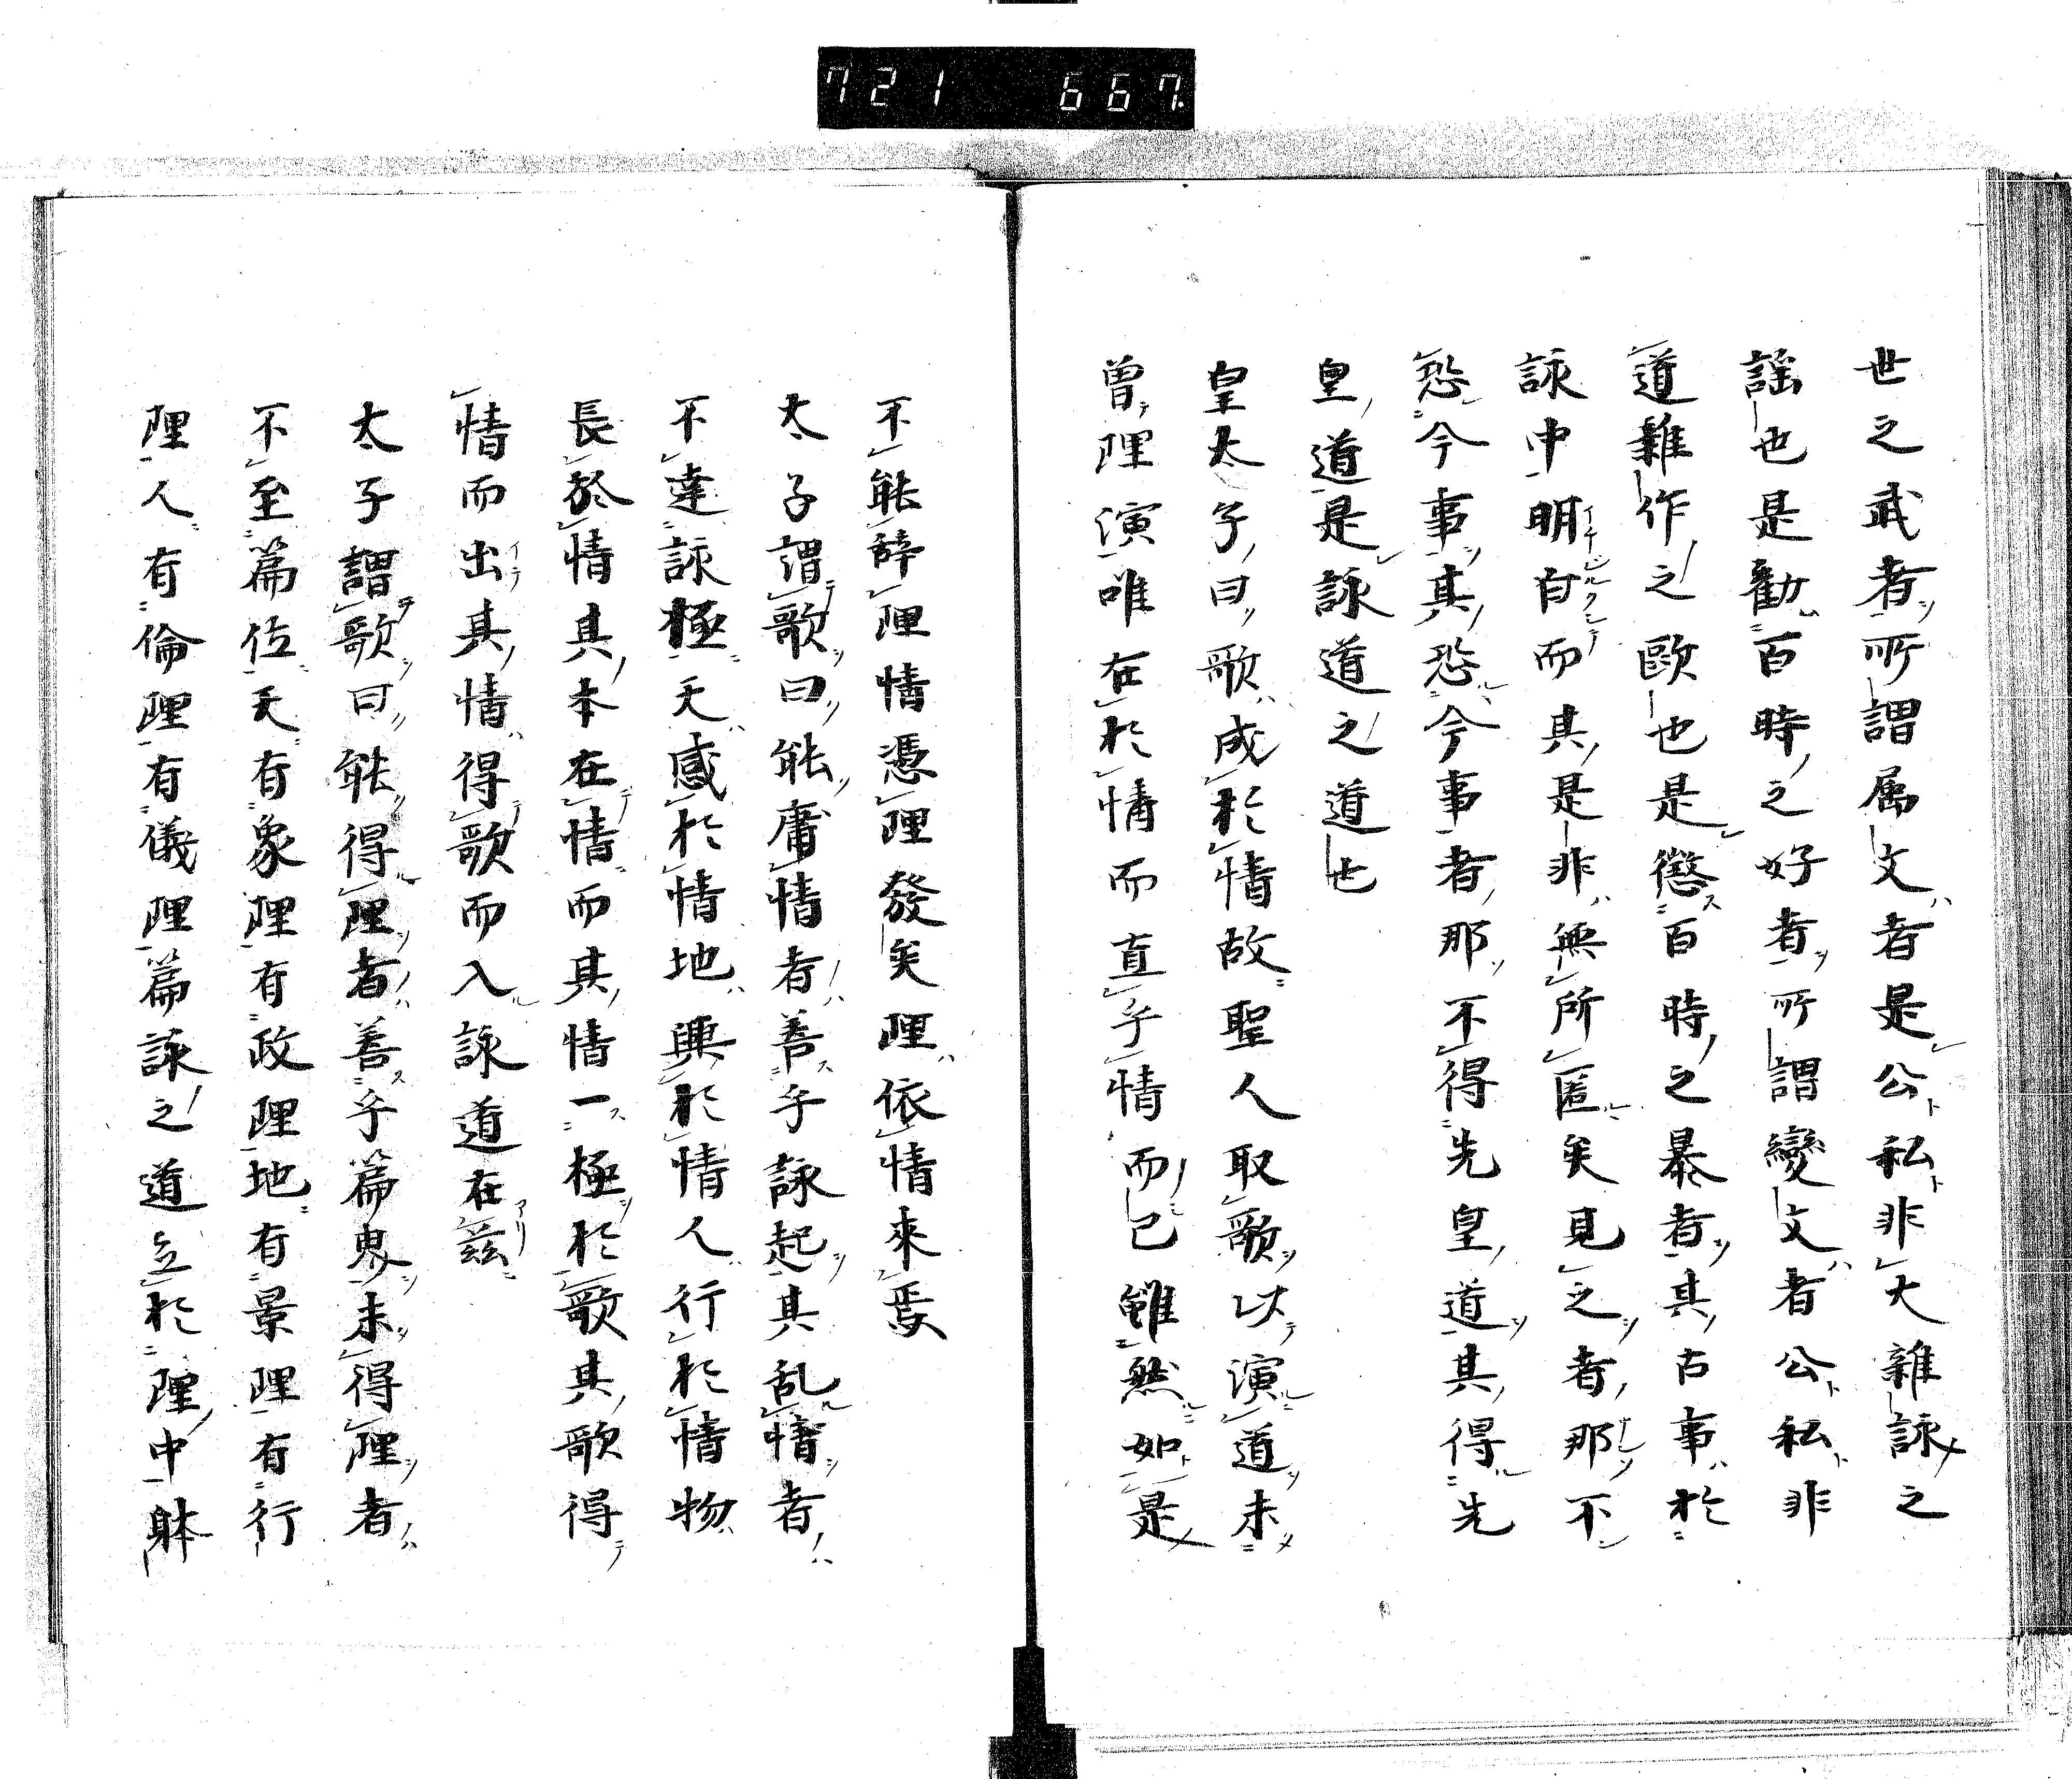 721 667
世之武者所謂属文者是公私非大雜詠之
謡也是勸百時之好者所謂變文者公私非
道雜作之歐也是懲百時之暴者其古事於
詠中明白而其是非無所匿矣見之者那不
恐今事其恐今事者那不得先皇道其得先
皇道是詠道之道也
皇太子曰歌成於情故聖人取歌以演道未
曽理演唯在於情而直乎情而已雖然如是
不能辞理情憑理發矣理依情來焉
太子謂歌曰能庸情者善乎詠起其乱情者
不達詠極天感於情地興於情人行於情物
長於情其本在情而其情一極於歌其歌得
情而出其情得歌而入詠道在茲
太子謂歌曰能得理者善乎篇畏未得理者
不至篇位天有象理有政理地有景理有行
理人有倫理有儀理篇詠之道立於理中躰